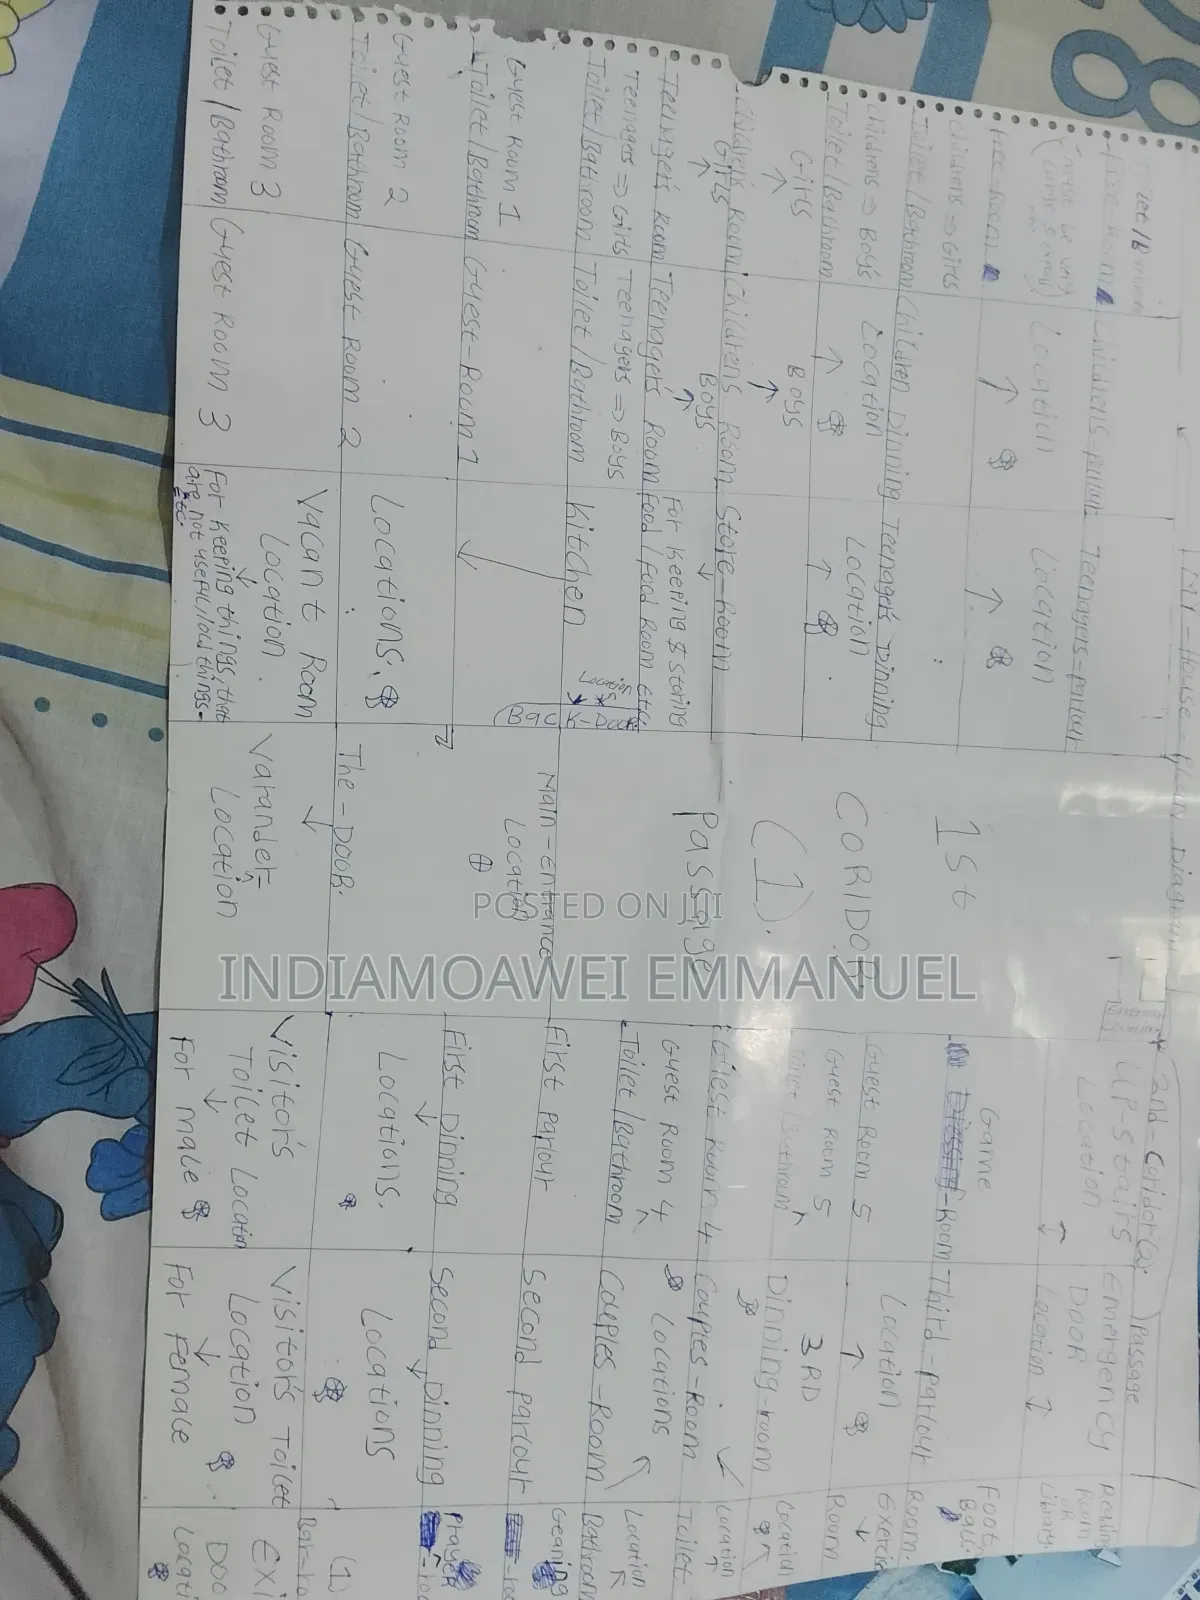 MY-House-PLAN Diagram
Free-Room
Childrens-parlour
Teenagers-parlour
Location
Location
Free-Room
Childrens => Girls
Toilet/Bathroom
Children Dinning
Teenagers Dinning
Childrens => Boys
Location
Location
Toilet/Bathroom
Girls
Boys
Childrens Room
Childrens Room
Store-Room
Girls
Boys
For Keeping & Storing
Teenagers Room
Teenagers Room
Food/Food Room Etc.
Teenagers => Girls
Teenagers => Boys
Location
Toilet/Bathroom
Toilet/Bathroom
Kitchen
Back-Door
Guest Room 1
Toilet/Bathroom
Guest-Room 1
Guest Room 2
Locations:
Toilet/Bathroom
Guest Room 2
Vacant Room
Guest Room 3
Location
Toilet/Bathroom
Guest Room 3
For Keeping things, that
are not useful/old things.
Etc.
1st
CORIDOR
(1).
Passage
Main-Entrance
Location
The-DOOR.
Varander=
Location
2and-Coridor(2).
Passage
UP-stairs
Emergency
Location
DOOR
Location
Reading
Room
OR
Library.
Game
-Room
Third-parlour
Foot
Ball
Room.
Guest Room 5
Location
Exercise
Guest Room 5
3RD
Room
Toilet/Bathroom
Dinning-room
Location
Guest Room 4
Couples-Room
Location
Toilet
Guest Room 4
Locations
Location
Toilet/Bathroom
Couples-Room
Bathroom
First parlour
Second parlour
First Dinning
Second Dinning
Locations.
Locations
(1)
Visitor's
Toilet Location
For male
Visitor's Toilet
Location
For Female
EXI
DOO
Locati
POSTED ON JIJI
INDIAMOAWEI EMMANUEL